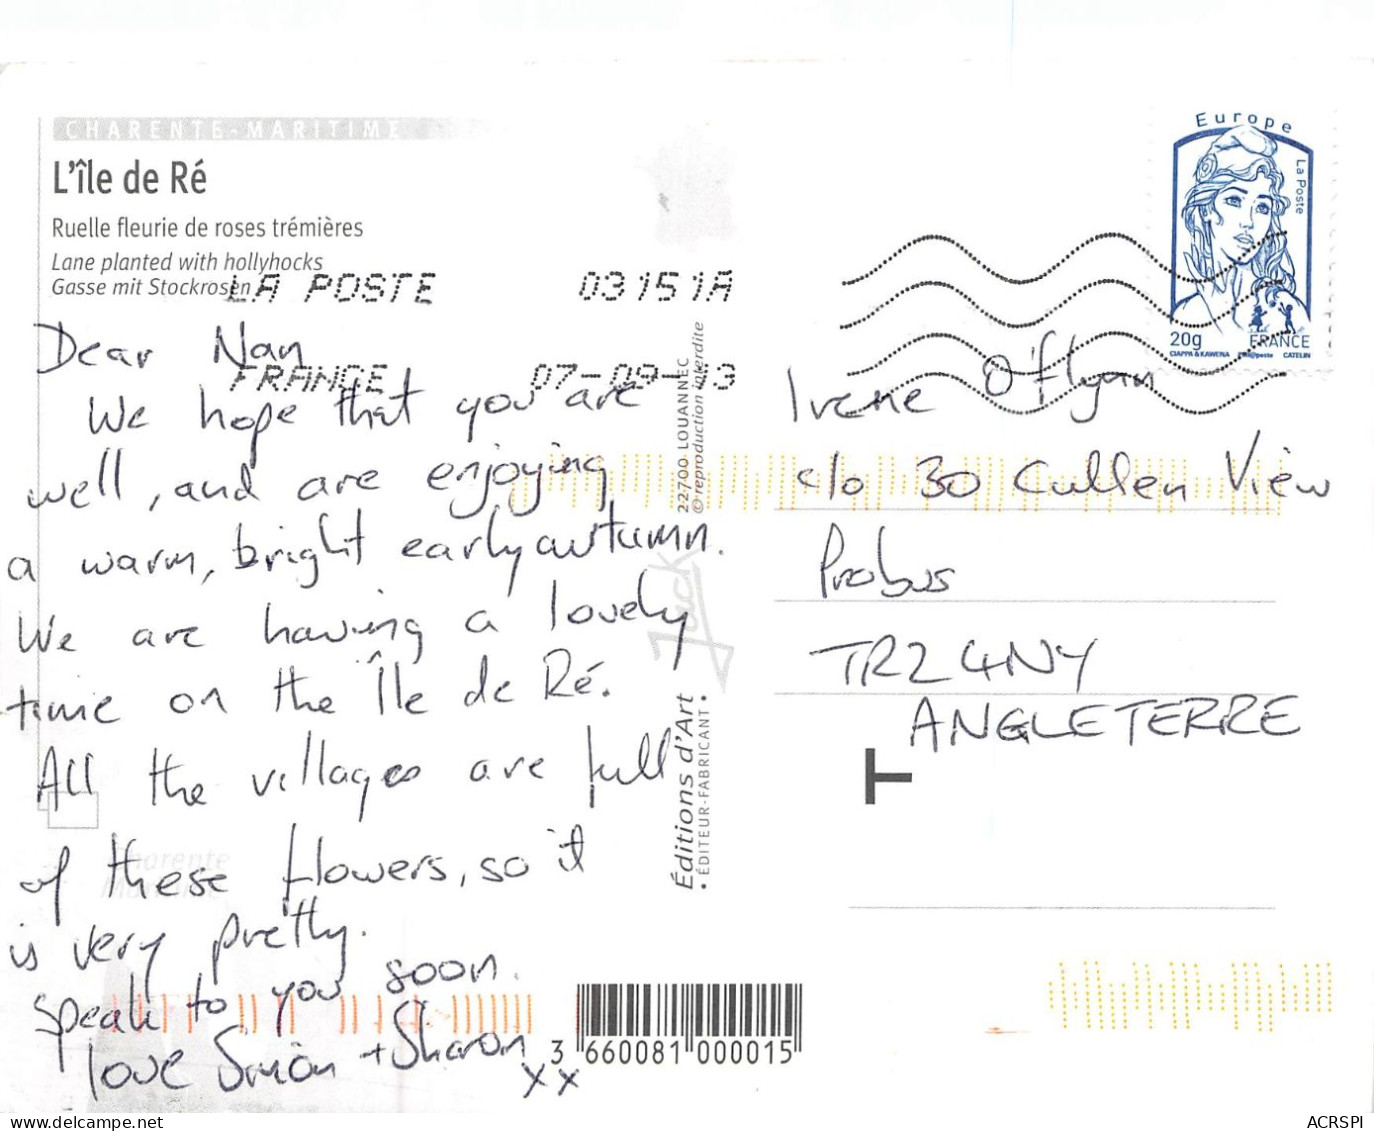 CHARENTE-MARITIME
L'île de Ré
Ruelle fleurie de roses trémières
Lane planted with hollyhocks
Gasse mit Stockrosen
LA POSTE 03151A
FRANCE 07-09-13
Dear Nan
We hope that you are
well, and are enjoying
a warm, bright early autumn.
We are having a lovely
time on the Île de Ré.
All the villages are full
of these flowers, so it
is very pretty.
Speak to you soon.
love Simon + Sharon
xx
22700 LOUANNEC
© reproduction interdite
Jack
Éditions d'Art
• ÉDITEUR-FABRICANT •
Charente
Maritime
3 660081 000015
Europe
La Poste
20g FRANCE
CIAPPA & KAWENA Phil@poste CATELIN
Irene O'flynn
c/o 30 Cullen View
Probus
TR2 4NY
ANGLETERRE
T
ACRSPI